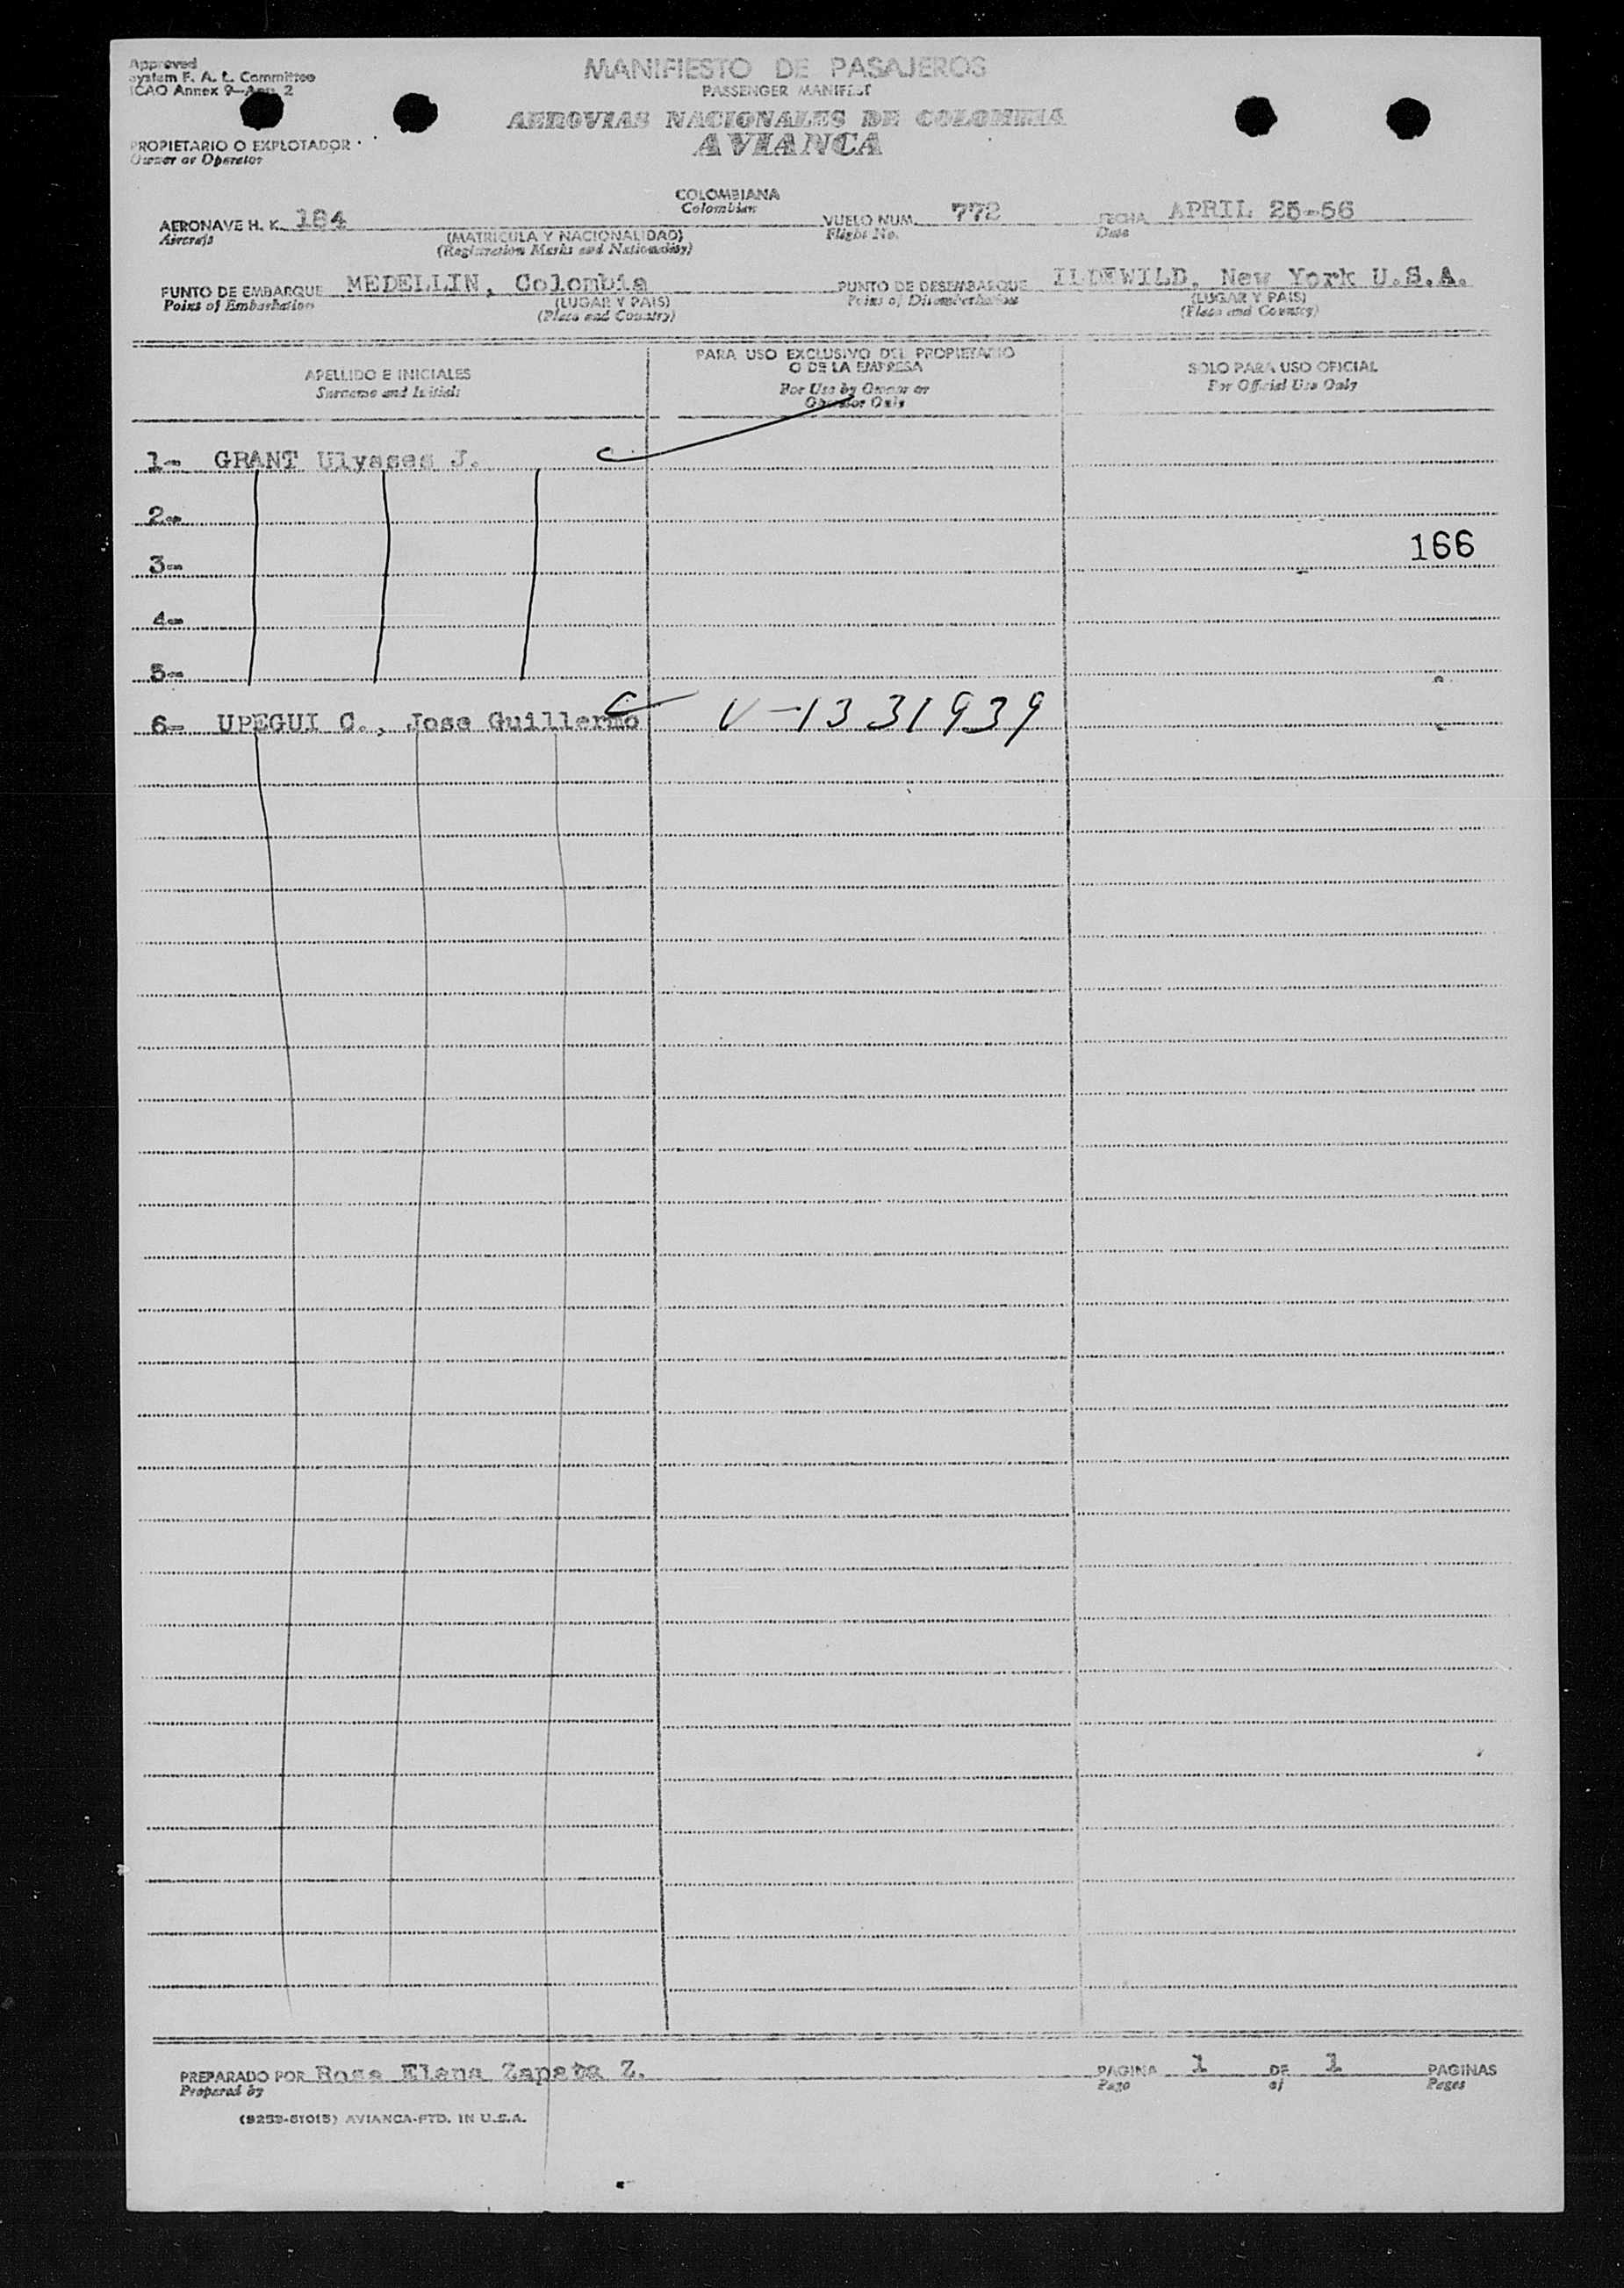 Approved
System F. A. L. Committee
ICAO Annex 9—App. 2
MANIFIESTO DE PASAJEROS
PASSENGER MANIFEST
AEROVIAS NACIONALES DE COLOMBIA
AVIANCA
PROPIETARIO O EXPLOTADOR
Owner or Operator
COLOMBIANA
Colombian
AERONAVE H. K. 184 VUELO NUM. 772 FECHA APRIL 25-56
Aircraft (MATRICULA Y NACIONALIDAD) Flight No. Date
(Registration Marks and Nationality)
PUNTO DE EMBARQUE MEDELLIN, Colombia PUNTO DE DESEMBARQUE ILDEWILD, New York U.S.A.
Point of Embarkation (LUGAR Y PAIS) Point of Disembarkation (LUGAR Y PAIS)
(Place and Country) (Place and Country)
APELLIDO E INICIALES PARA USO EXCLUSIVO DEL PROPIETARIO SOLO PARA USO OFICIAL
O DE LA EMPRESA
Surname and Initials For Use by Owner or For Official Use Only
Operator Only
1- GRANT Ulysses J.
2-
166
3-
4-
5-
6- UPEGUI C., Jose Guillermo V-1331939
PREPARADO POR Rosa Elena Zapata Z. PAGINA 1 DE 1 PAGINAS
Prepared by Page of Pages
(9253-61015) AVIANCA-PTD. IN U.S.A.